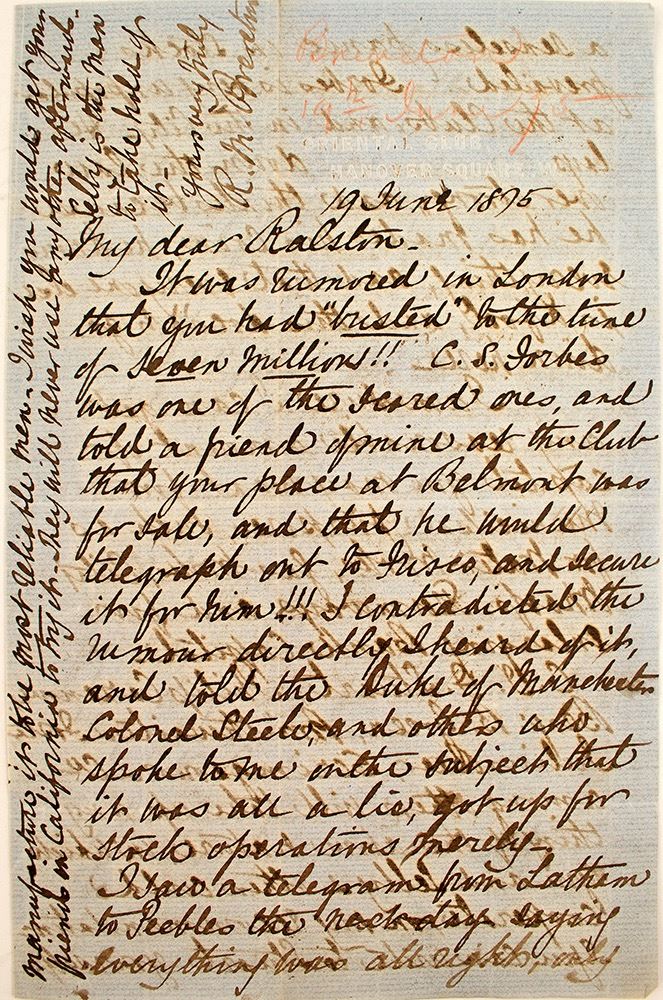 ORIENTAL CLUB
HANOVER SQUARE, W.
19 June 1875
My dear Ralston.
It was rumored in London
that you had "busted" to the tune
of seven millions!! C. S. Forbes
was one of the scared ones, and
told a friend of mine at the Club
that your place at Belmont was
for sale, and that he would
telegraph out to Frisco, and secure
it for him!!! I contradicted the
rumour directly I heard of it,
and told the Duke of Manchester
Colonel Steele, and others who
spoke to me on the subject that
it was all a lie, got up for
stock operations merely.
I saw a telegram from Latham
to Peebles the next day saying
everything was all right, only
manufacture it is the most reliable men. I wish you would get your
friends in California to try it. They will never use any other afterwards.
Selby is the man
to take hold of
it.
Yours very truly
R. M.